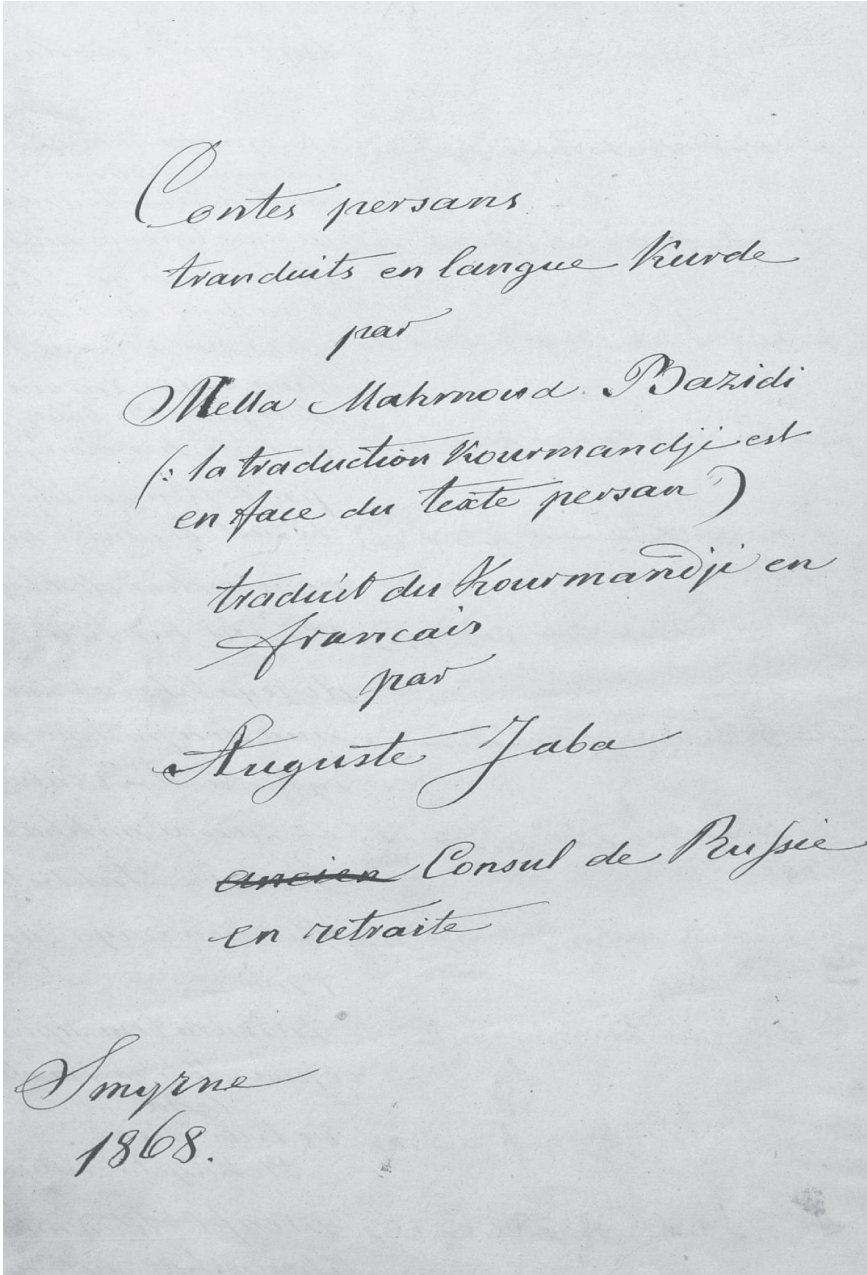 Contes persans
tranduits en langue Kurde
par
Mella Mahmoud Bazidi
(: la traduction Kourmandji est
en face du texte persan)
traduit du Kourmandji en
francais
par
Auguste Jaba
ancien Consul de Russie
en retraite
Smyrne
1868.